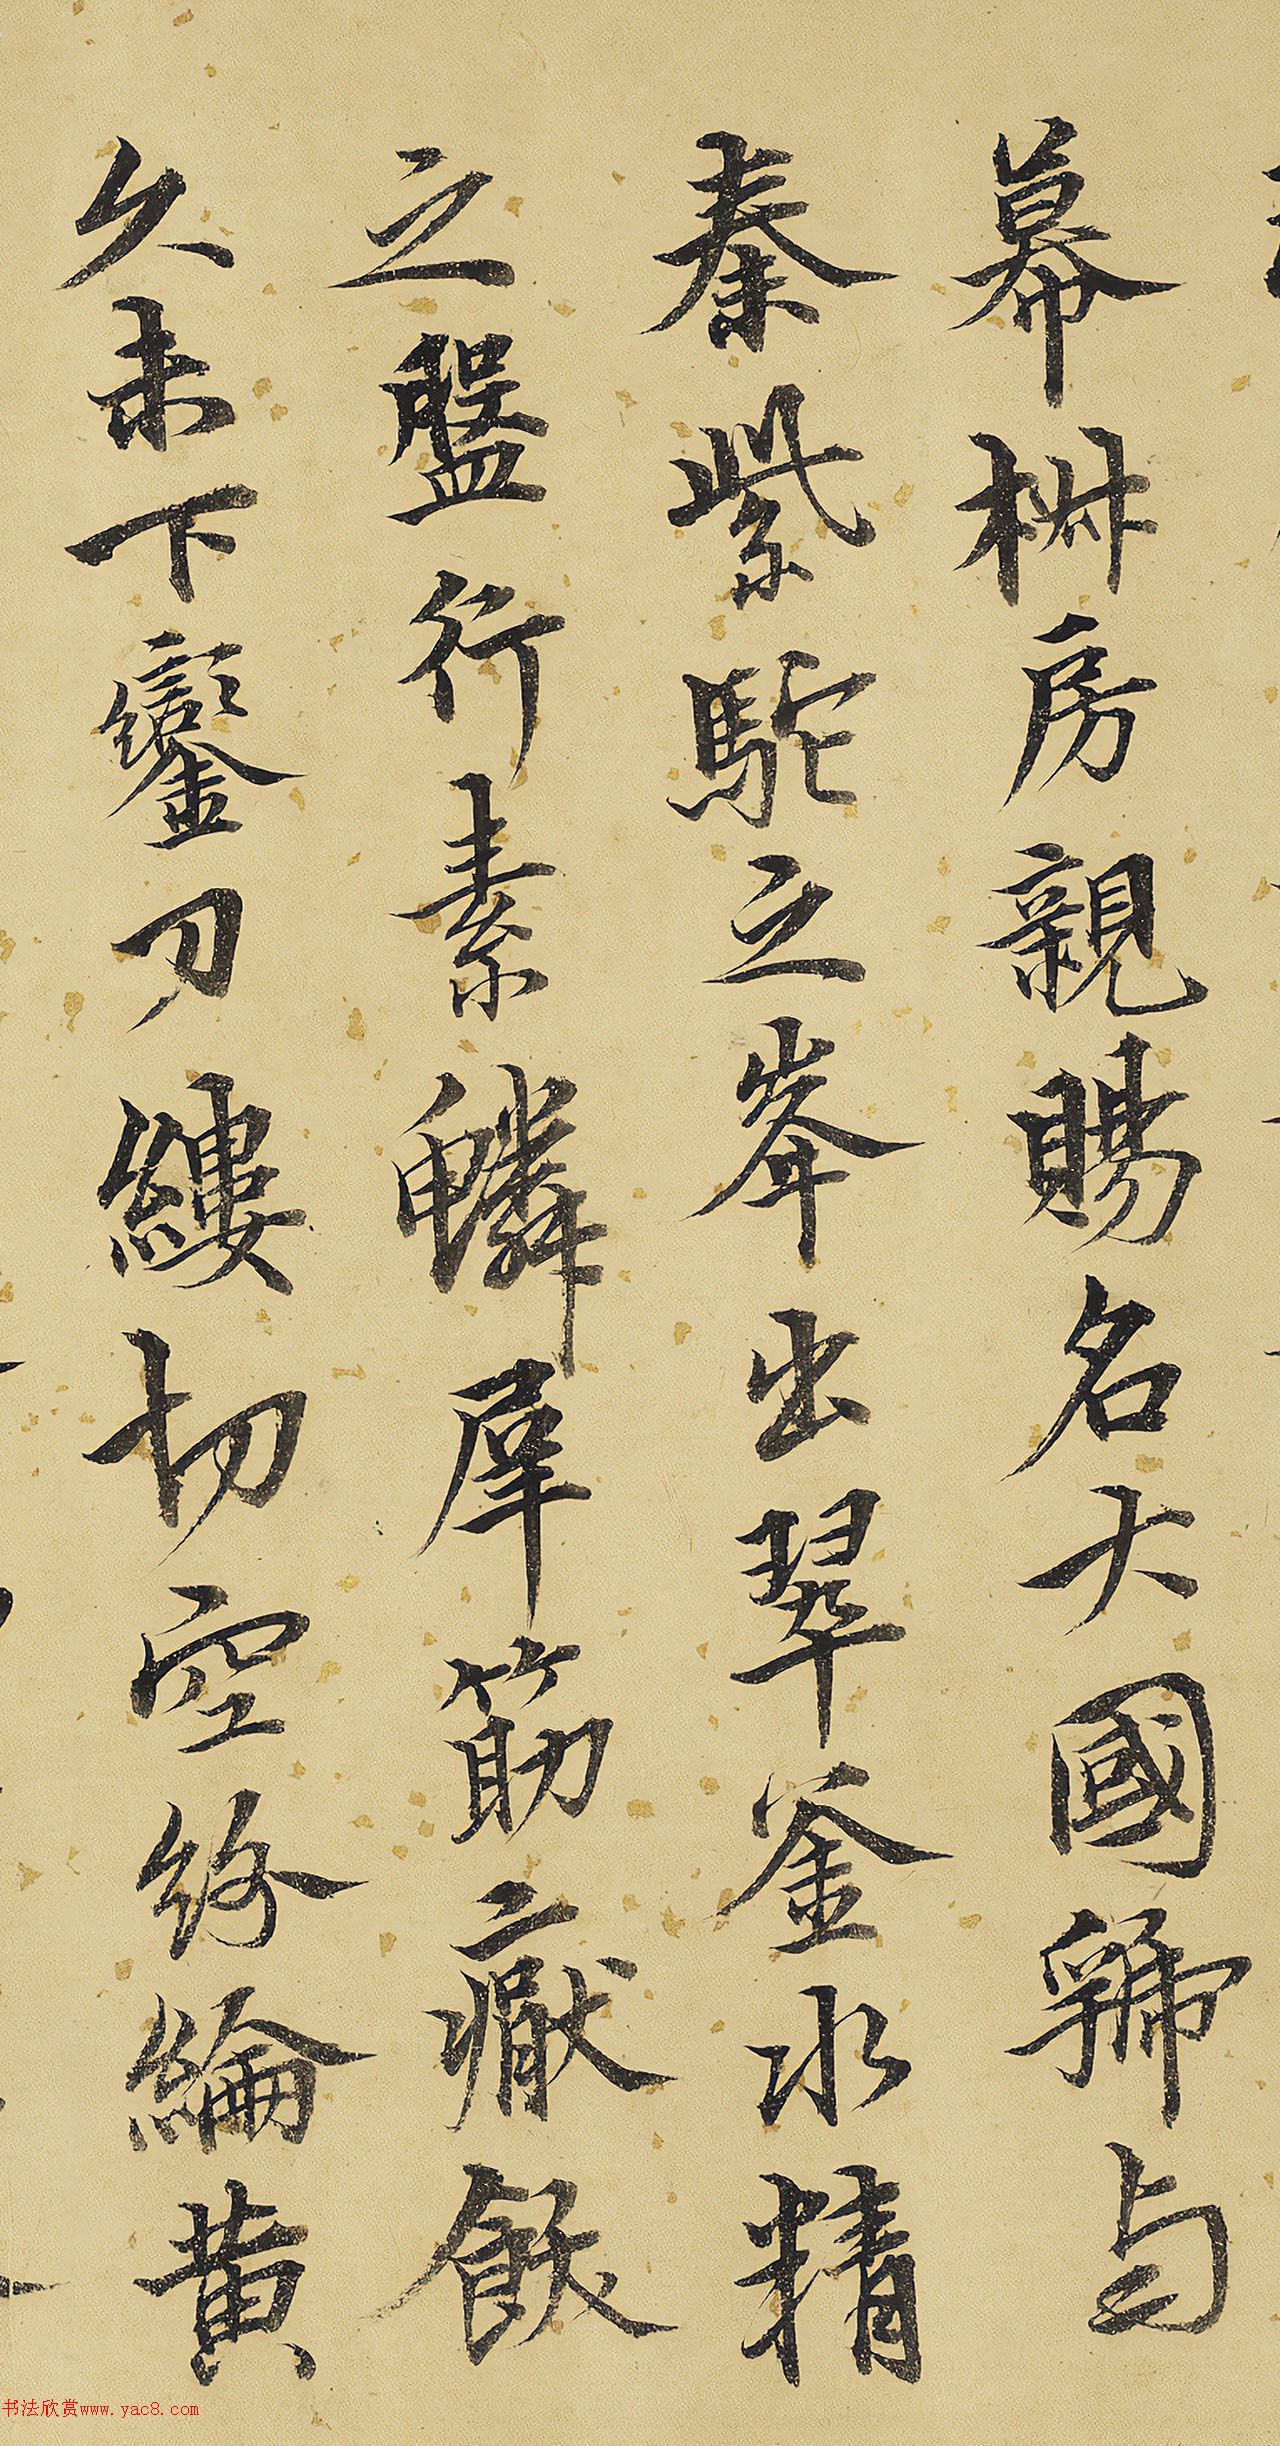 幕椒房親賜名大國虢与
秦紫駝之峯出翠釜水精
之盤行素鱗犀筯厭飫
久未下鑾刀縷切空紛綸黄
书法欣赏www.yac8.com